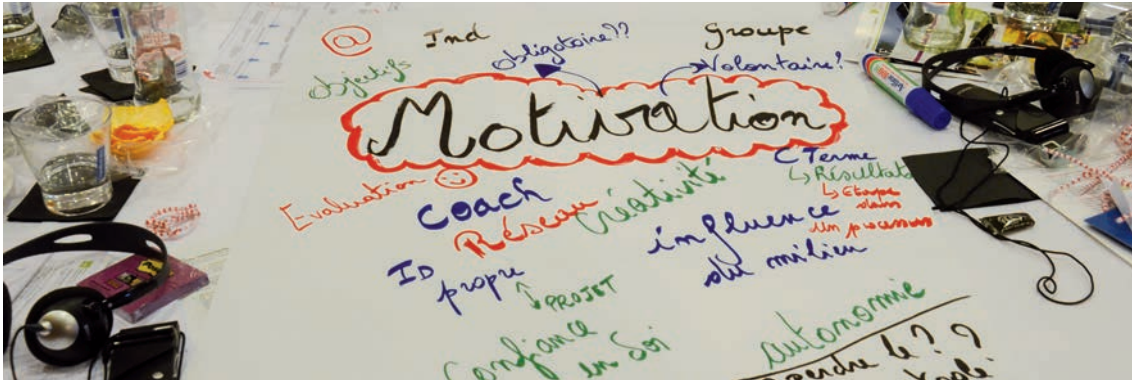 @
Ind
Groupe
Obligatoire??
Volontaire?
Objectifs
Motivation
Evaluation
Coach
Réseau
Créativité
C Terme
Résultats
Etape
dans
un processus
influence
du milieu
ID
propre
PROJET
Confiance
en Soi
autonomie